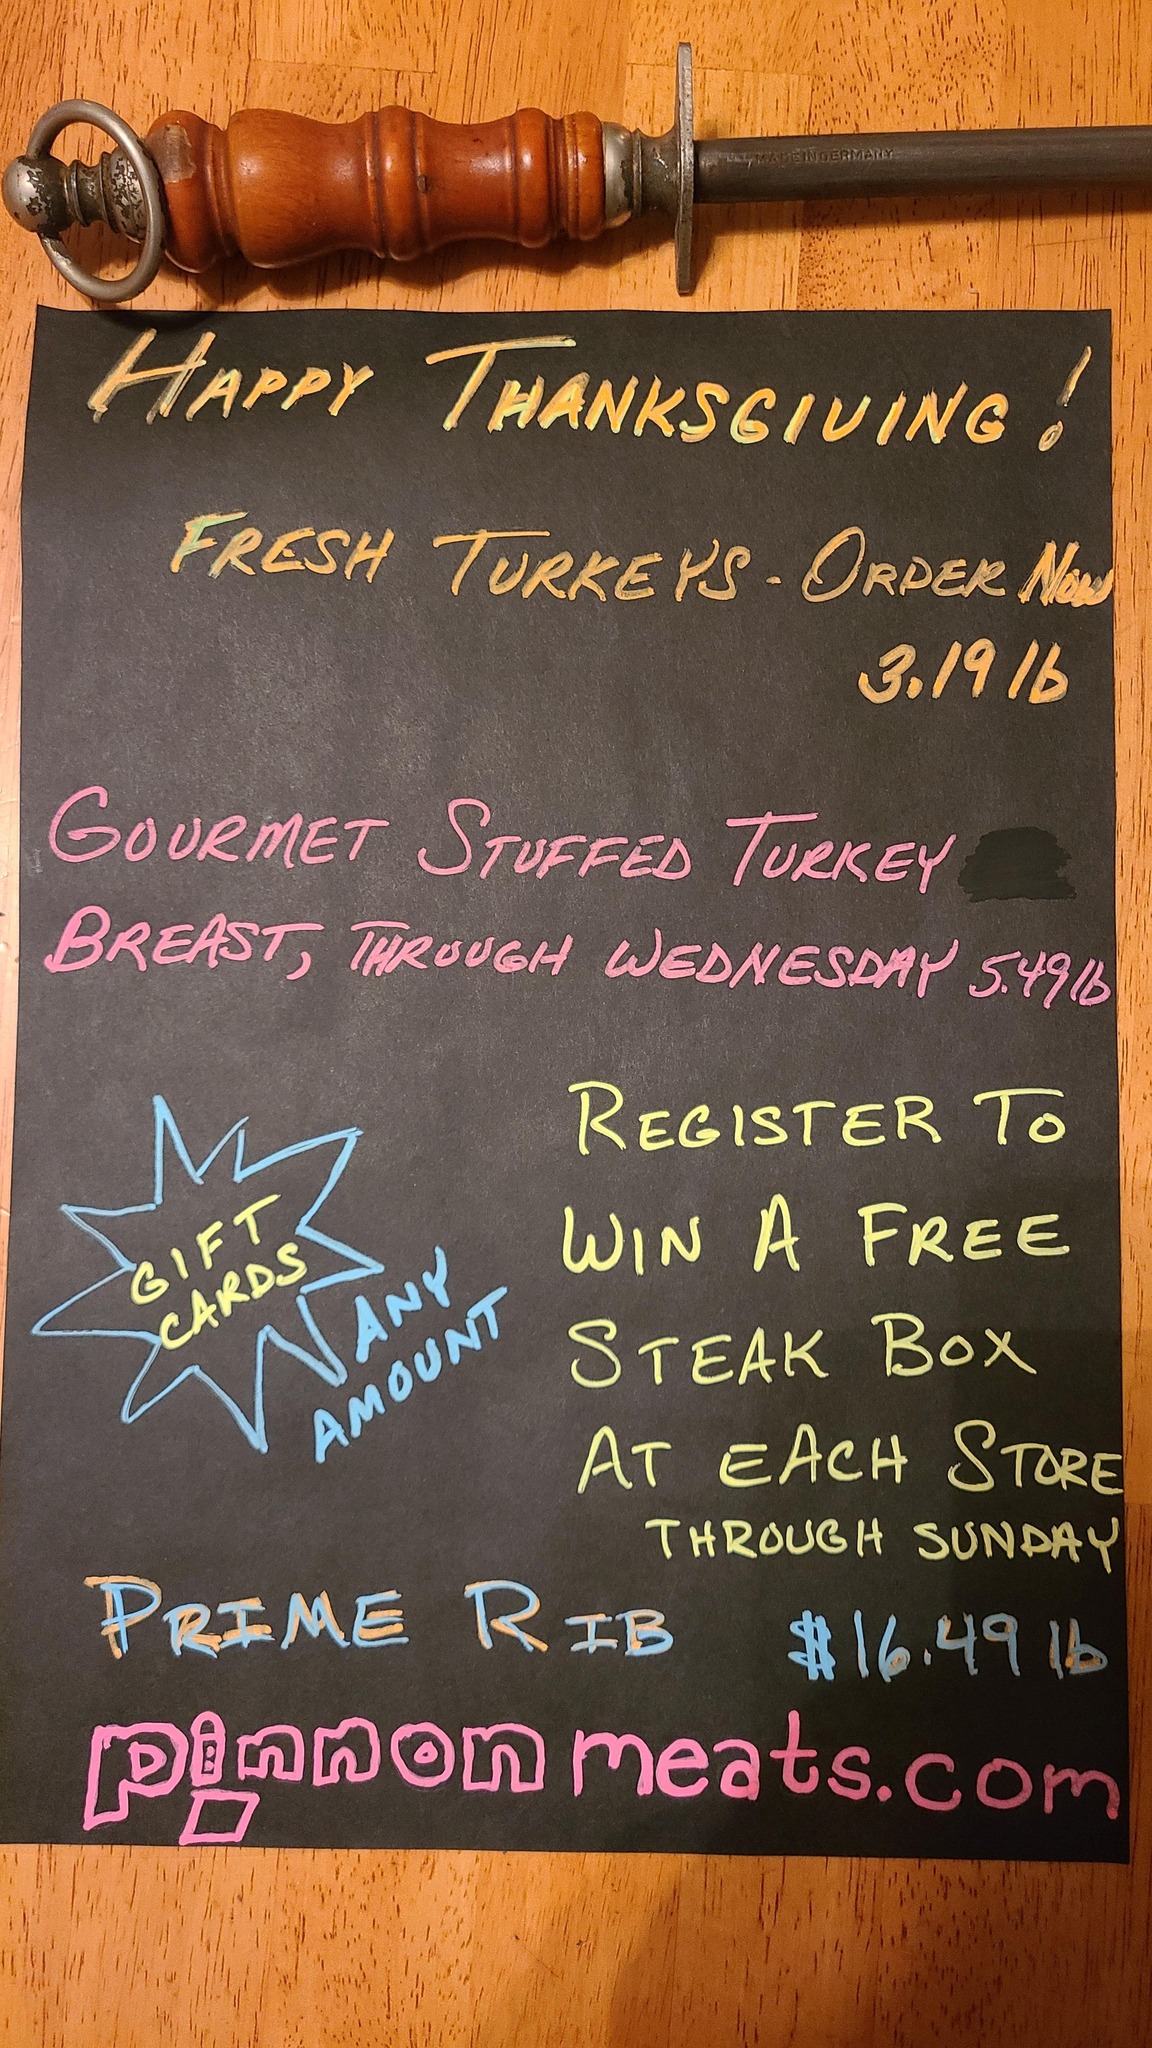 MADE IN GERMANY
HAPPY THANKSGIVING!
FRESH TURKEYS - ORDER NOW
3.19 lb
GOURMET STUFFED TURKEY
BREAST, THROUGH WEDNESDAY 5.49 lb
GIFT
CARDS
ANY
AMOUNT
REGISTER TO
WIN A FREE
STEAK BOX
AT EACH STORE
THROUGH SUNDAY
PRIME RIB $16.49 lb
pinnonmeats.com